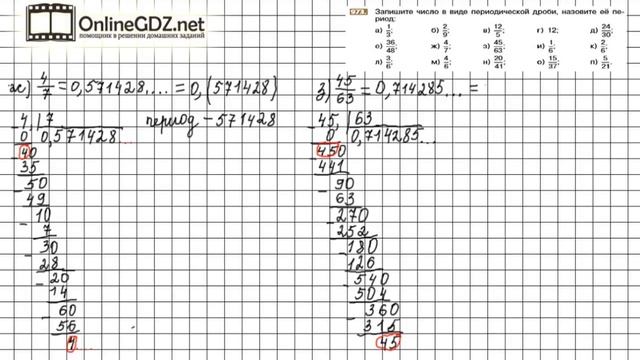 OnlineGDZ.net
помощник в решении домашних заданий
Запишите число в виде периодической дроби, назовите её период:
а) 1/3; б) 2/9; в) 12/5; г) 12; д) 24/30;
е) 36/48; ж) 4/7; з) 45/63; и) 1/6; к) 2/6;
л) 3/6; м) 4/6; н) 20/41; о) 15/37; п) 5/21.
ж) 4/7 = 0,571428.... = 0,(571428)
4, | 7
0 0,571428...
период – 571428
40
35
50
49
10
7
30
28
20
14
60
56
4...
з) 45/63 = 0,714285... =
45, | 63
0 0,714285...
450
441
90
63
270
252
180
126
540
504
360
315
45